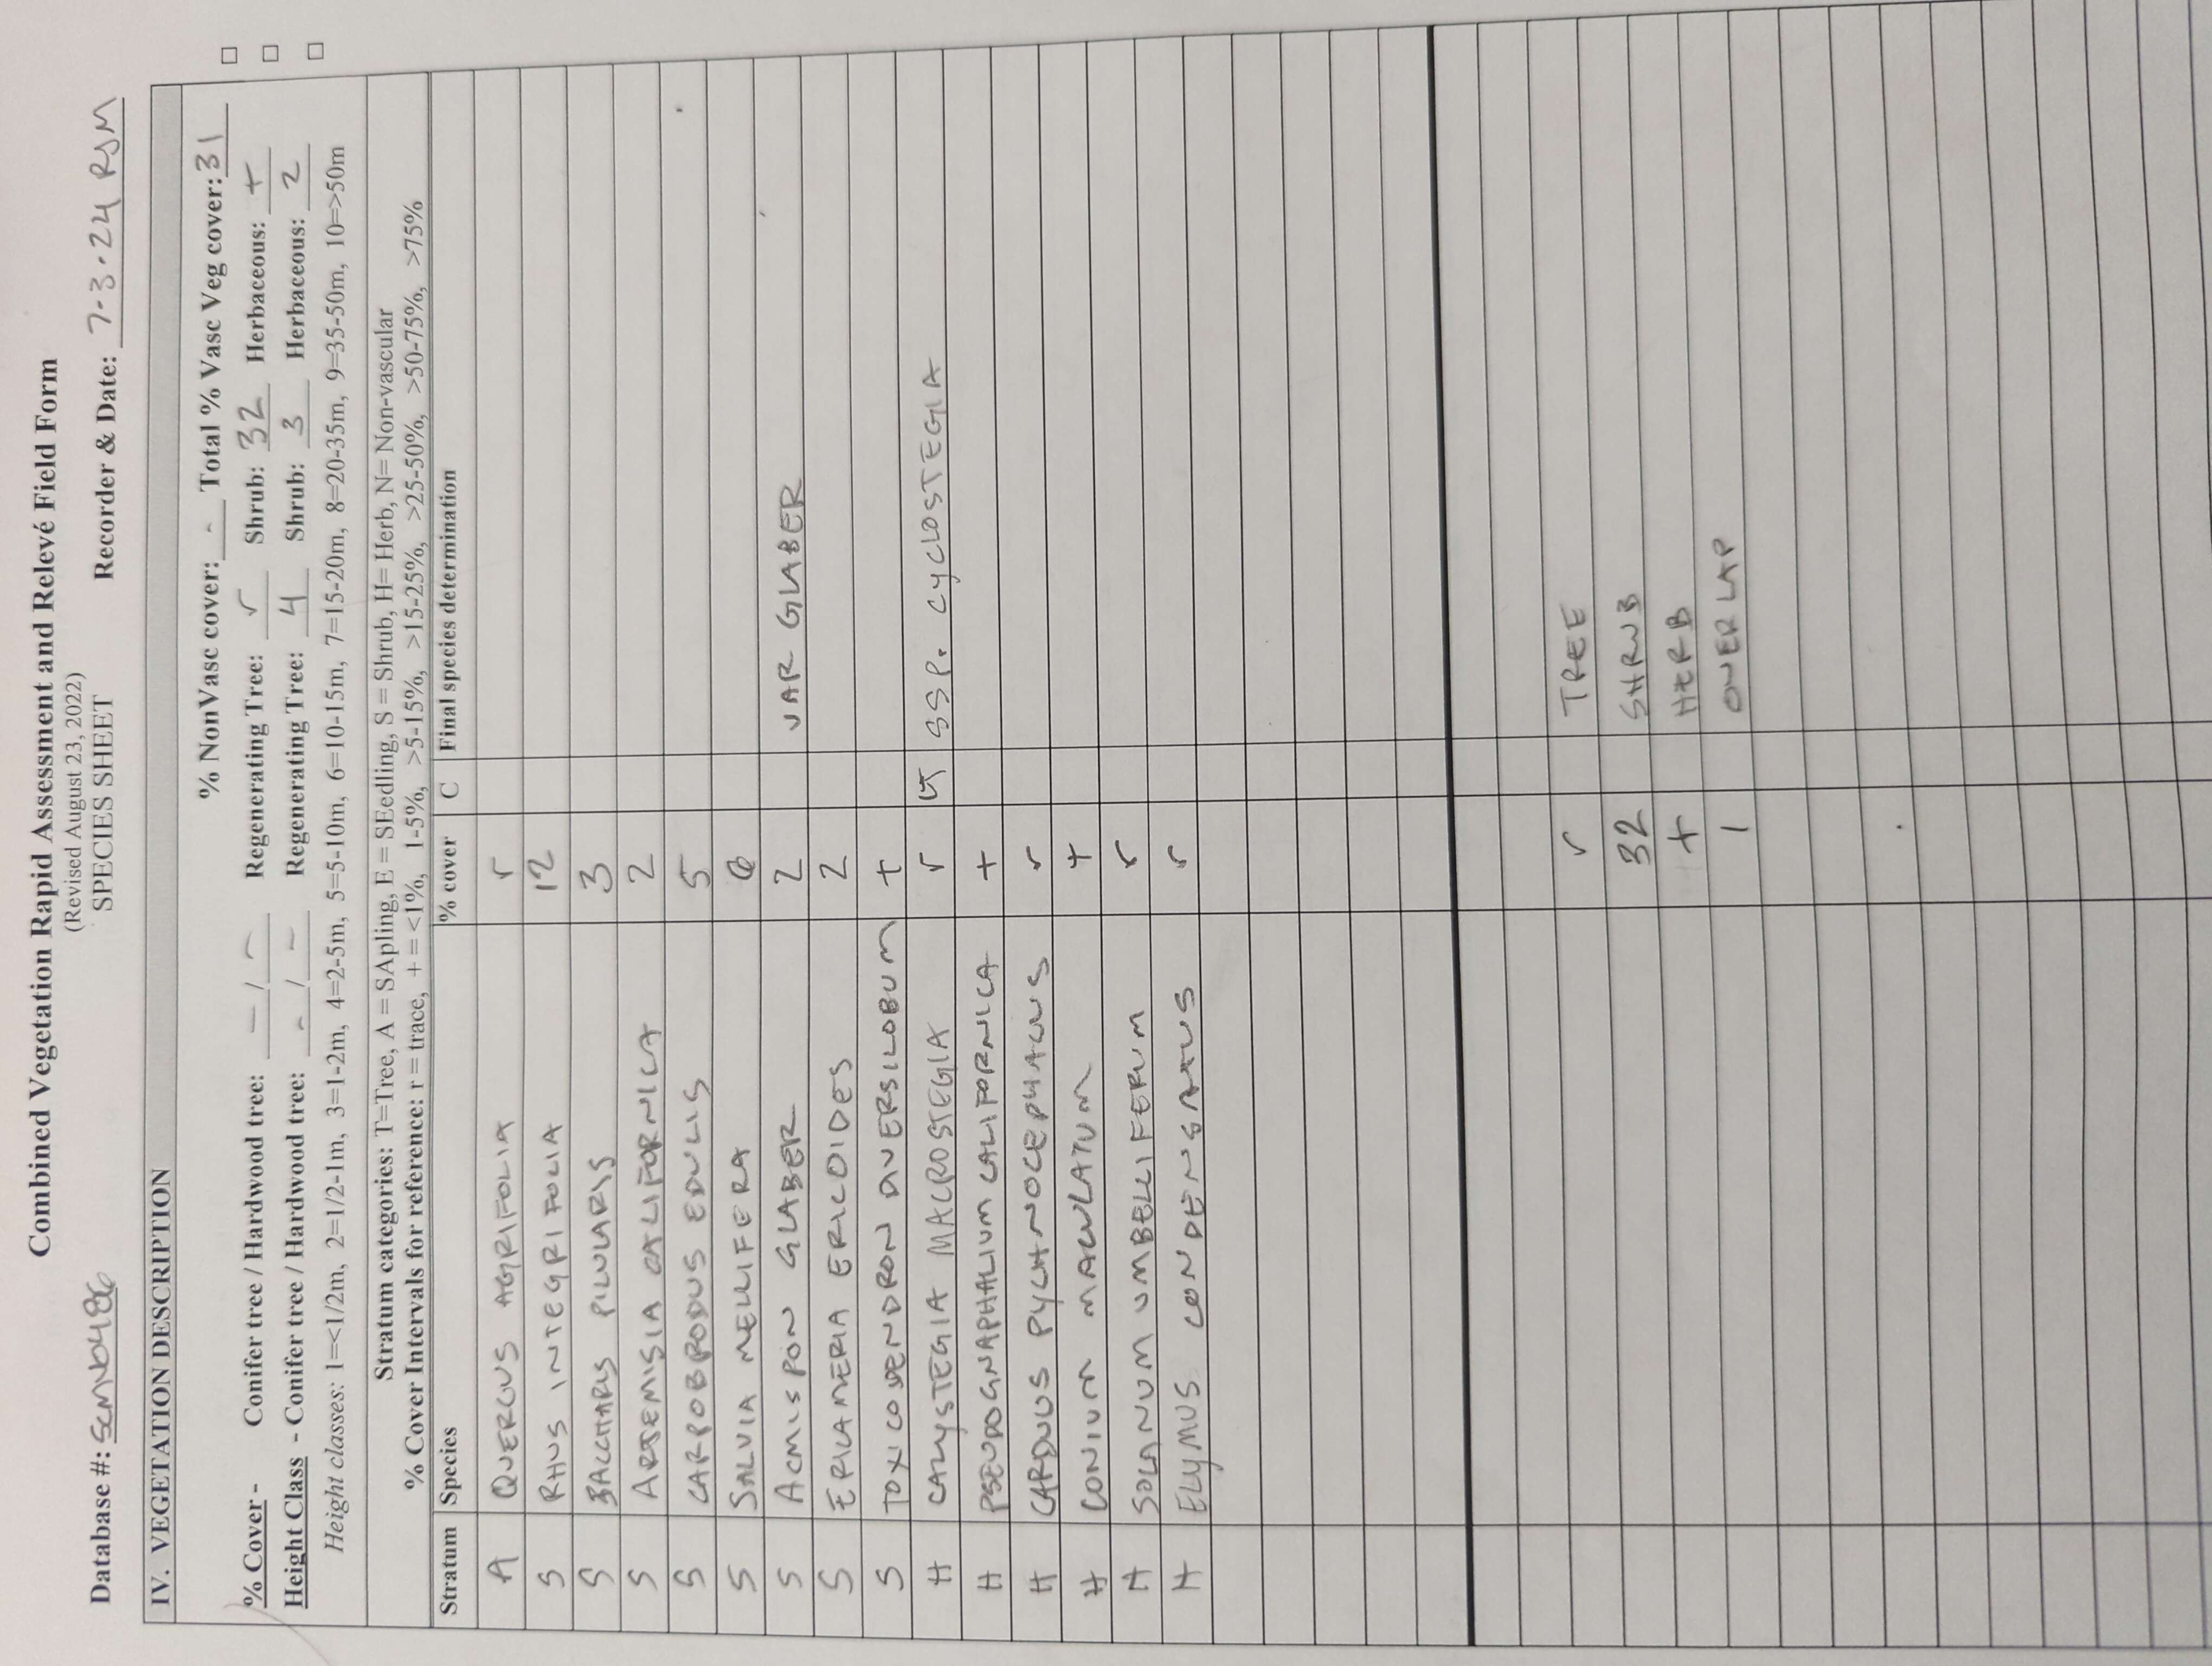 Combined Vegetation Rapid Assessment and Relevé Field Form
(Revised August 23, 2022)
SPECIES SHEET
Database #: SCMN0486 Recorder & Date: 7-3-24 RJM
IV. VEGETATION DESCRIPTION
% NonVasc cover: - Total % Vasc Veg cover: 31
% Cover - Conifer tree / Hardwood tree: - / - Regenerating Tree: r Shrub: 32 Herbaceous: +
Height Class - Conifer tree / Hardwood tree: - / - Regenerating Tree: 4 Shrub: 3 Herbaceous: 2
Height classes: 1=<1/2m, 2=1/2-1m, 3=1-2m, 4=2-5m, 5=5-10m, 6=10-15m, 7=15-20m, 8=20-35m, 9=35-50m, 10=>50m
Stratum categories: T=Tree, A = SApling, E = SEedling, S = Shrub, H= Herb, N= Non-vascular
% Cover Intervals for reference: r = trace, + = <1%, 1-5%, >5-15%, >15-25%, >25-50%, >50-75%, >75%
Stratum Species % cover C Final species determination
A QUERCUS AGRIFOLIA r
S RHUS INTEGRIFOLIA 12
S BACCHARIS PILULARIS 3
S ARTEMISIA CALIFORNICA 2
S CARPOBRODUS EDULIS 5
S SALVIA MELLIFERA
S ACMISPON GLABER 2 VAR GLABER
S ERICAMERIA ERICOIDES 2
S TOXICODENDRON DIVERSILOBUM +
H CALYSTEGIA MACROSTEGIA r SSP. CYCLOSTEGIA
H PSEUDOGNAPHALIUM CALIFORNICA +
H CARDUUS PYCHNOCEPHALUS r
H CONIUM MACULATUM +
H SOLANUM UMBELLIFERUM r
H ELYMUS CONDENSATUS r
r TREE
32 SHRUB
+ HERB
1 OVERLAP